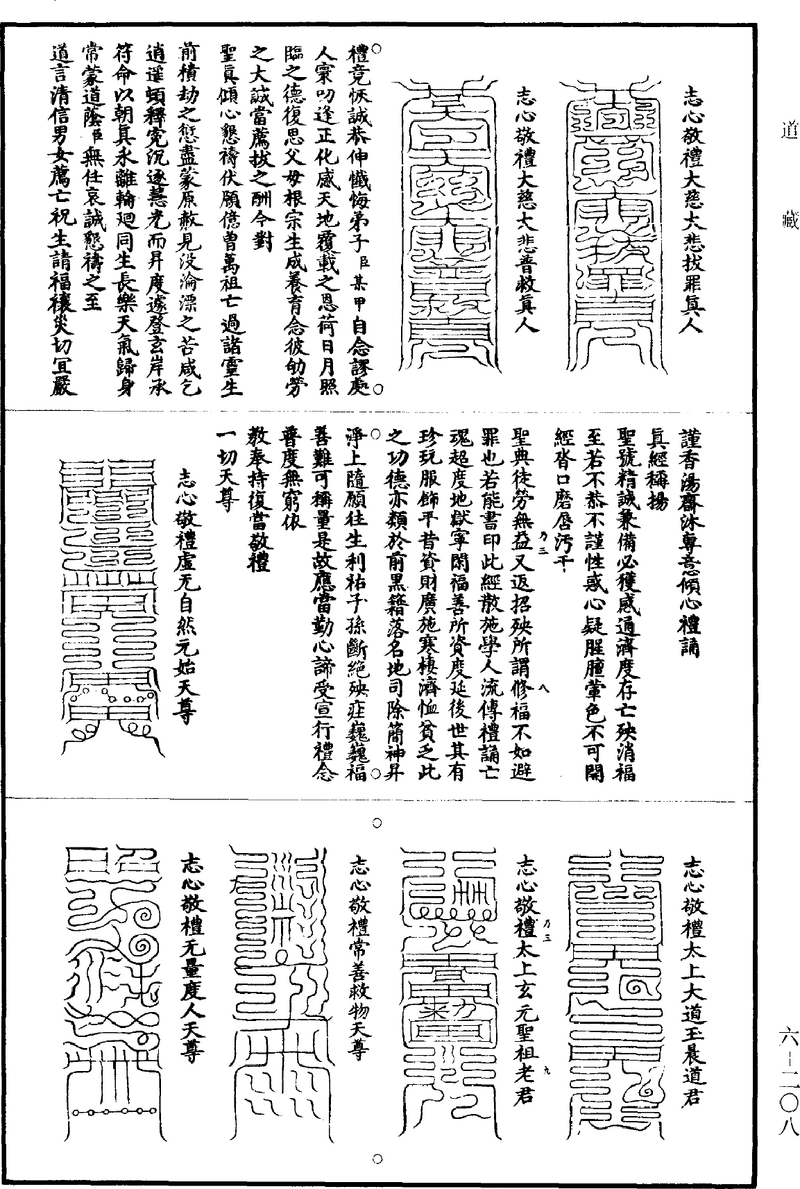 道藏
六-二〇八
志心敬禮大慈大悲拔罪真人
志心敬禮大慈大悲普救真人
禮竟恢誠恭伸懺悔弟子臣某甲自念謬處
人寰叨逢正化感天地覆載之恩荷日月照
臨之德復思父母根宗生成養育念彼劬勞
之大誠當薦拔之酬今對
聖真傾心懇禱伏願億曾萬祖亡過諸靈生
前積劫之愆盡蒙原赦見没淪漂之苦咸乞
逍遥頓釋寃沉逐慧光而昇度遽登玄岸承
符命以朝真永離輪廻同生長樂天氣歸身
常蒙道蔭臣無任哀誠懇禱之至
道言清信男女薦亡祝生請福禳災切宜嚴
謹香湯齋沐專意傾心禮誦
真經稱揚
聖號精誠兼備必獲感通濟度存亡殃消福
至若不恭不謹性惑心疑腥膻葷色不可開
經沓口磨唇汚干
聖典徒勞無益又返招殃所謂修福不如避
罪也若能書印此經散施學人流傳禮誦亡
魂超度地獄寧閑福善所資度延後世其有
珍玩服飾平昔資財廣施寒棲濟恤貧乏此
之功德亦類於前黑籍落名地司除簡神昇
淨土隨願往生利祐子孫斷絶殃疰巍巍福
善難可稱量是故應當勤心諦受宣行禮念
普度無窮依
教奉持復當敬禮
一切天尊
志心敬禮虛无自然元始天尊
志心敬禮太上大道玉晨道君
志心敬禮太上玄元聖祖老君
志心敬禮常善救物天尊
志心敬禮无量度人天尊